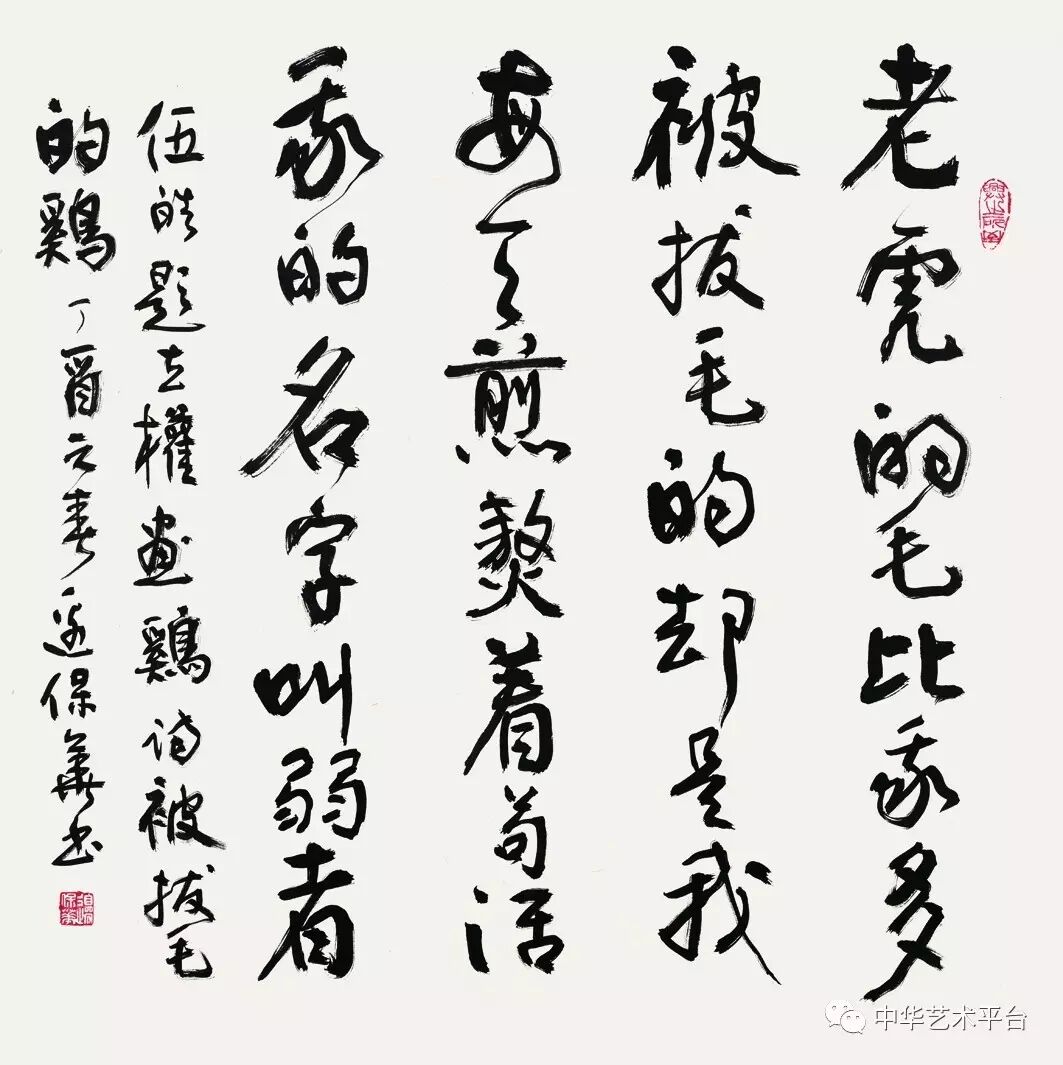 老虎的毛比我多
被拔毛的却是我
每天煎熬着苟活
我的名字叫弱者
伍皓題立權畫鷄诗被拔毛
的鷄 丁酉之春 保華书
中华艺术平台